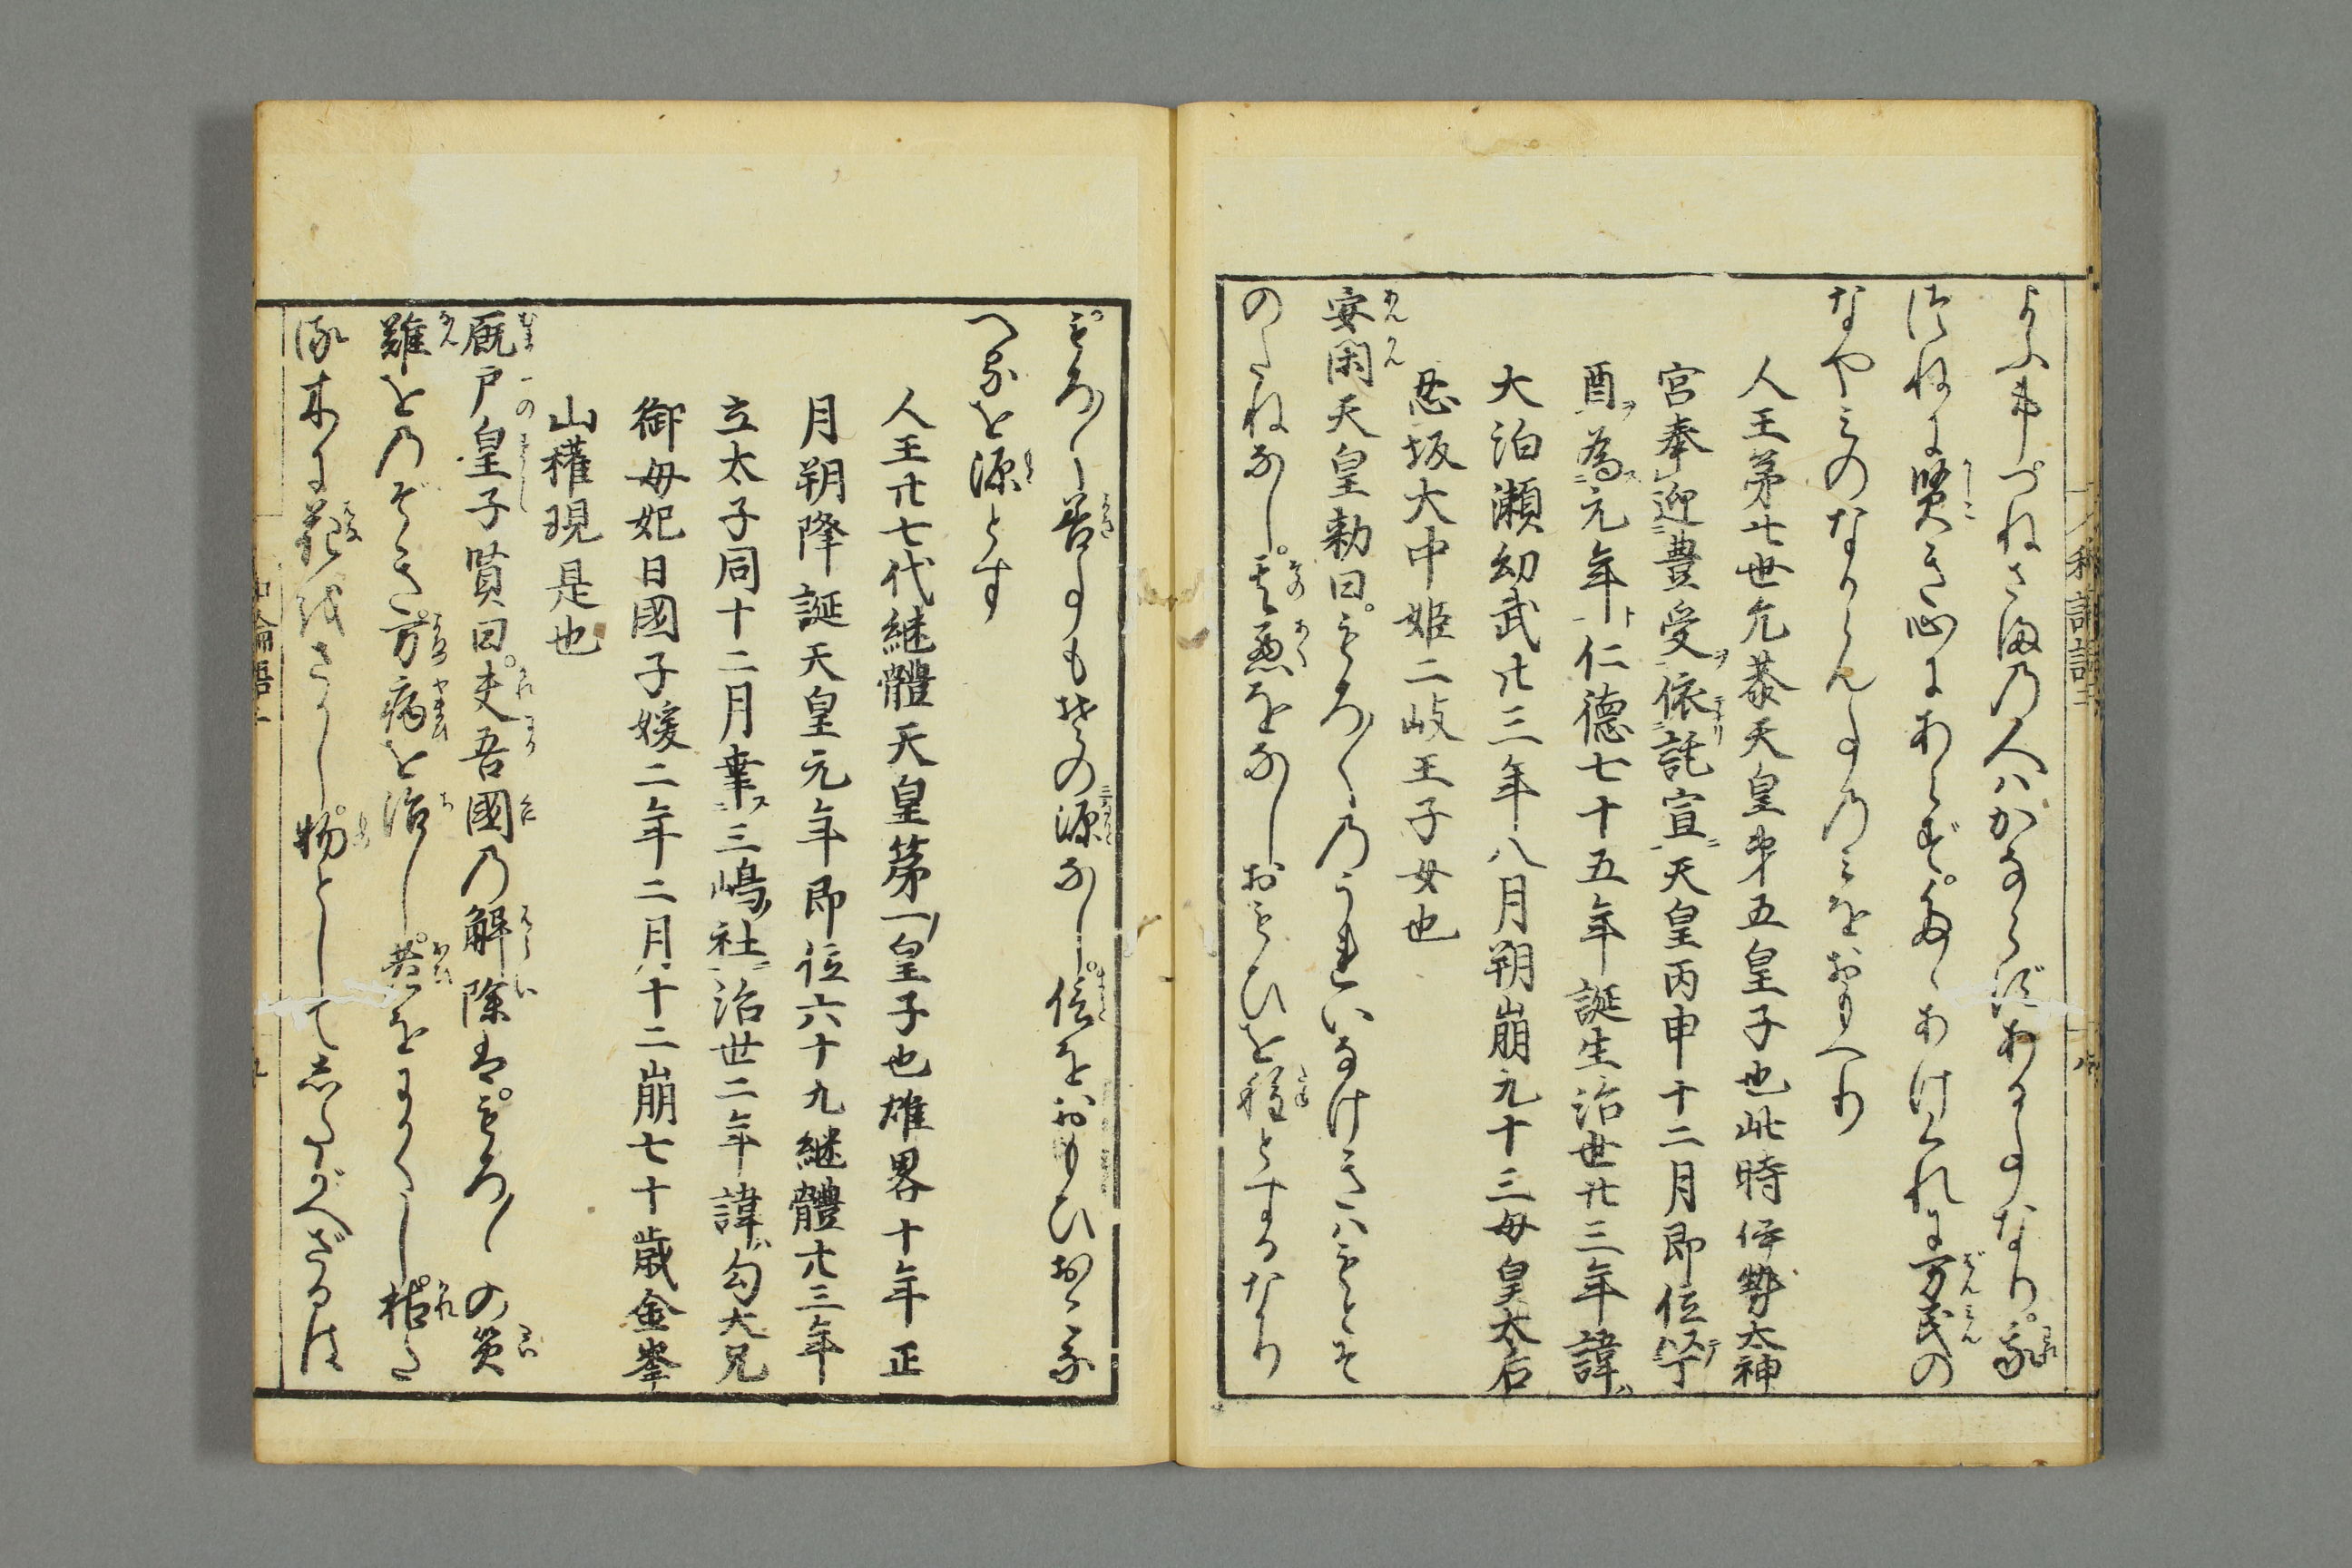 よふ事つねさ満乃人ハかならずあることなり。我
つねに賢き心にあらず。多ゝあけくれに万民の
なやみのなからんことのミをおもへり
人王第廿世允恭天皇第五皇子也此時伊勢太神
宮奉迎豊受依託宣天皇丙申十二月即位丁
酉為元年仁德七十五年誕生治世廿三年諱
大泊瀬幼武廿三年八月朔崩九十三母皇太后
忍坂大中姫二岐王子女也
安閑天皇勅曰。もろ〳〵乃うれいなけきハもとそ
のたねなし。其惡をなしおもひを種とするなり
もろ〳〵善事もその源なし。信をおもひおこな
へるを源とす
人王廿七代継體天皇第一皇子也雄畧十年正
月朔降誕天皇元年即位六十九継體廿三年
立太子同十二月葬三嶋社治世二年諱勾大兄
御母妃日國子媛二年二月十二崩七十歳金峯
山権現是也
厩戸皇子賛曰。夫吾國乃解除は。もろ〳〵の災
難をのぞき。万病を治し。苦をまぬかし。枯き
木に花はさかし。物としてしたがへざるは